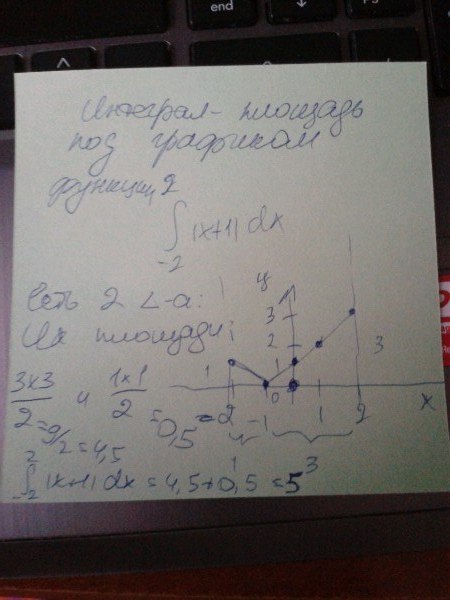 end
Интеграл - площадь
под графиком
функции
2
∫ |x+1| dx
-2
Есть 2 ∠-а:
Их площади:
3x3/2 = 9/2 = 4,5 и 1x1/2 = 0,5
y
3
2
1
0
-2 -1 1 2 x
1
3
1 3
2
∫ |x+1| dx = 4,5 + 0,5 = 5
-2